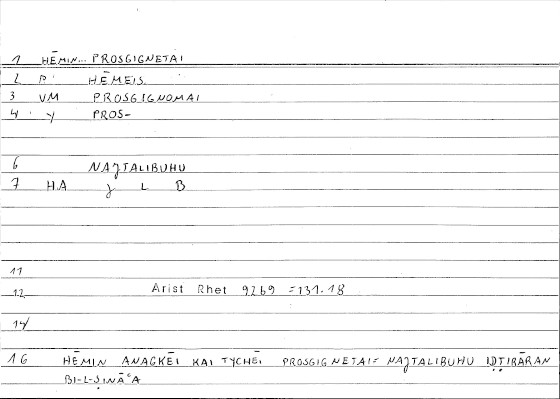 1 HĒMIN... PROSGIGNETAI
2 P HĒMEIS
3 VM PROSGIGNOMAI
4 y PROS-
6 NAJTALIBUHU
7 HA J L B
11
12 Arist Rhet 9269 =131.18
14
16 HĒMIN ANAGKĒI KAI TYCHĒI PROSGIGNETAI= NAJTALIBUHU IḌṬIRĀRAN
BI-L-ṢINĀʿA